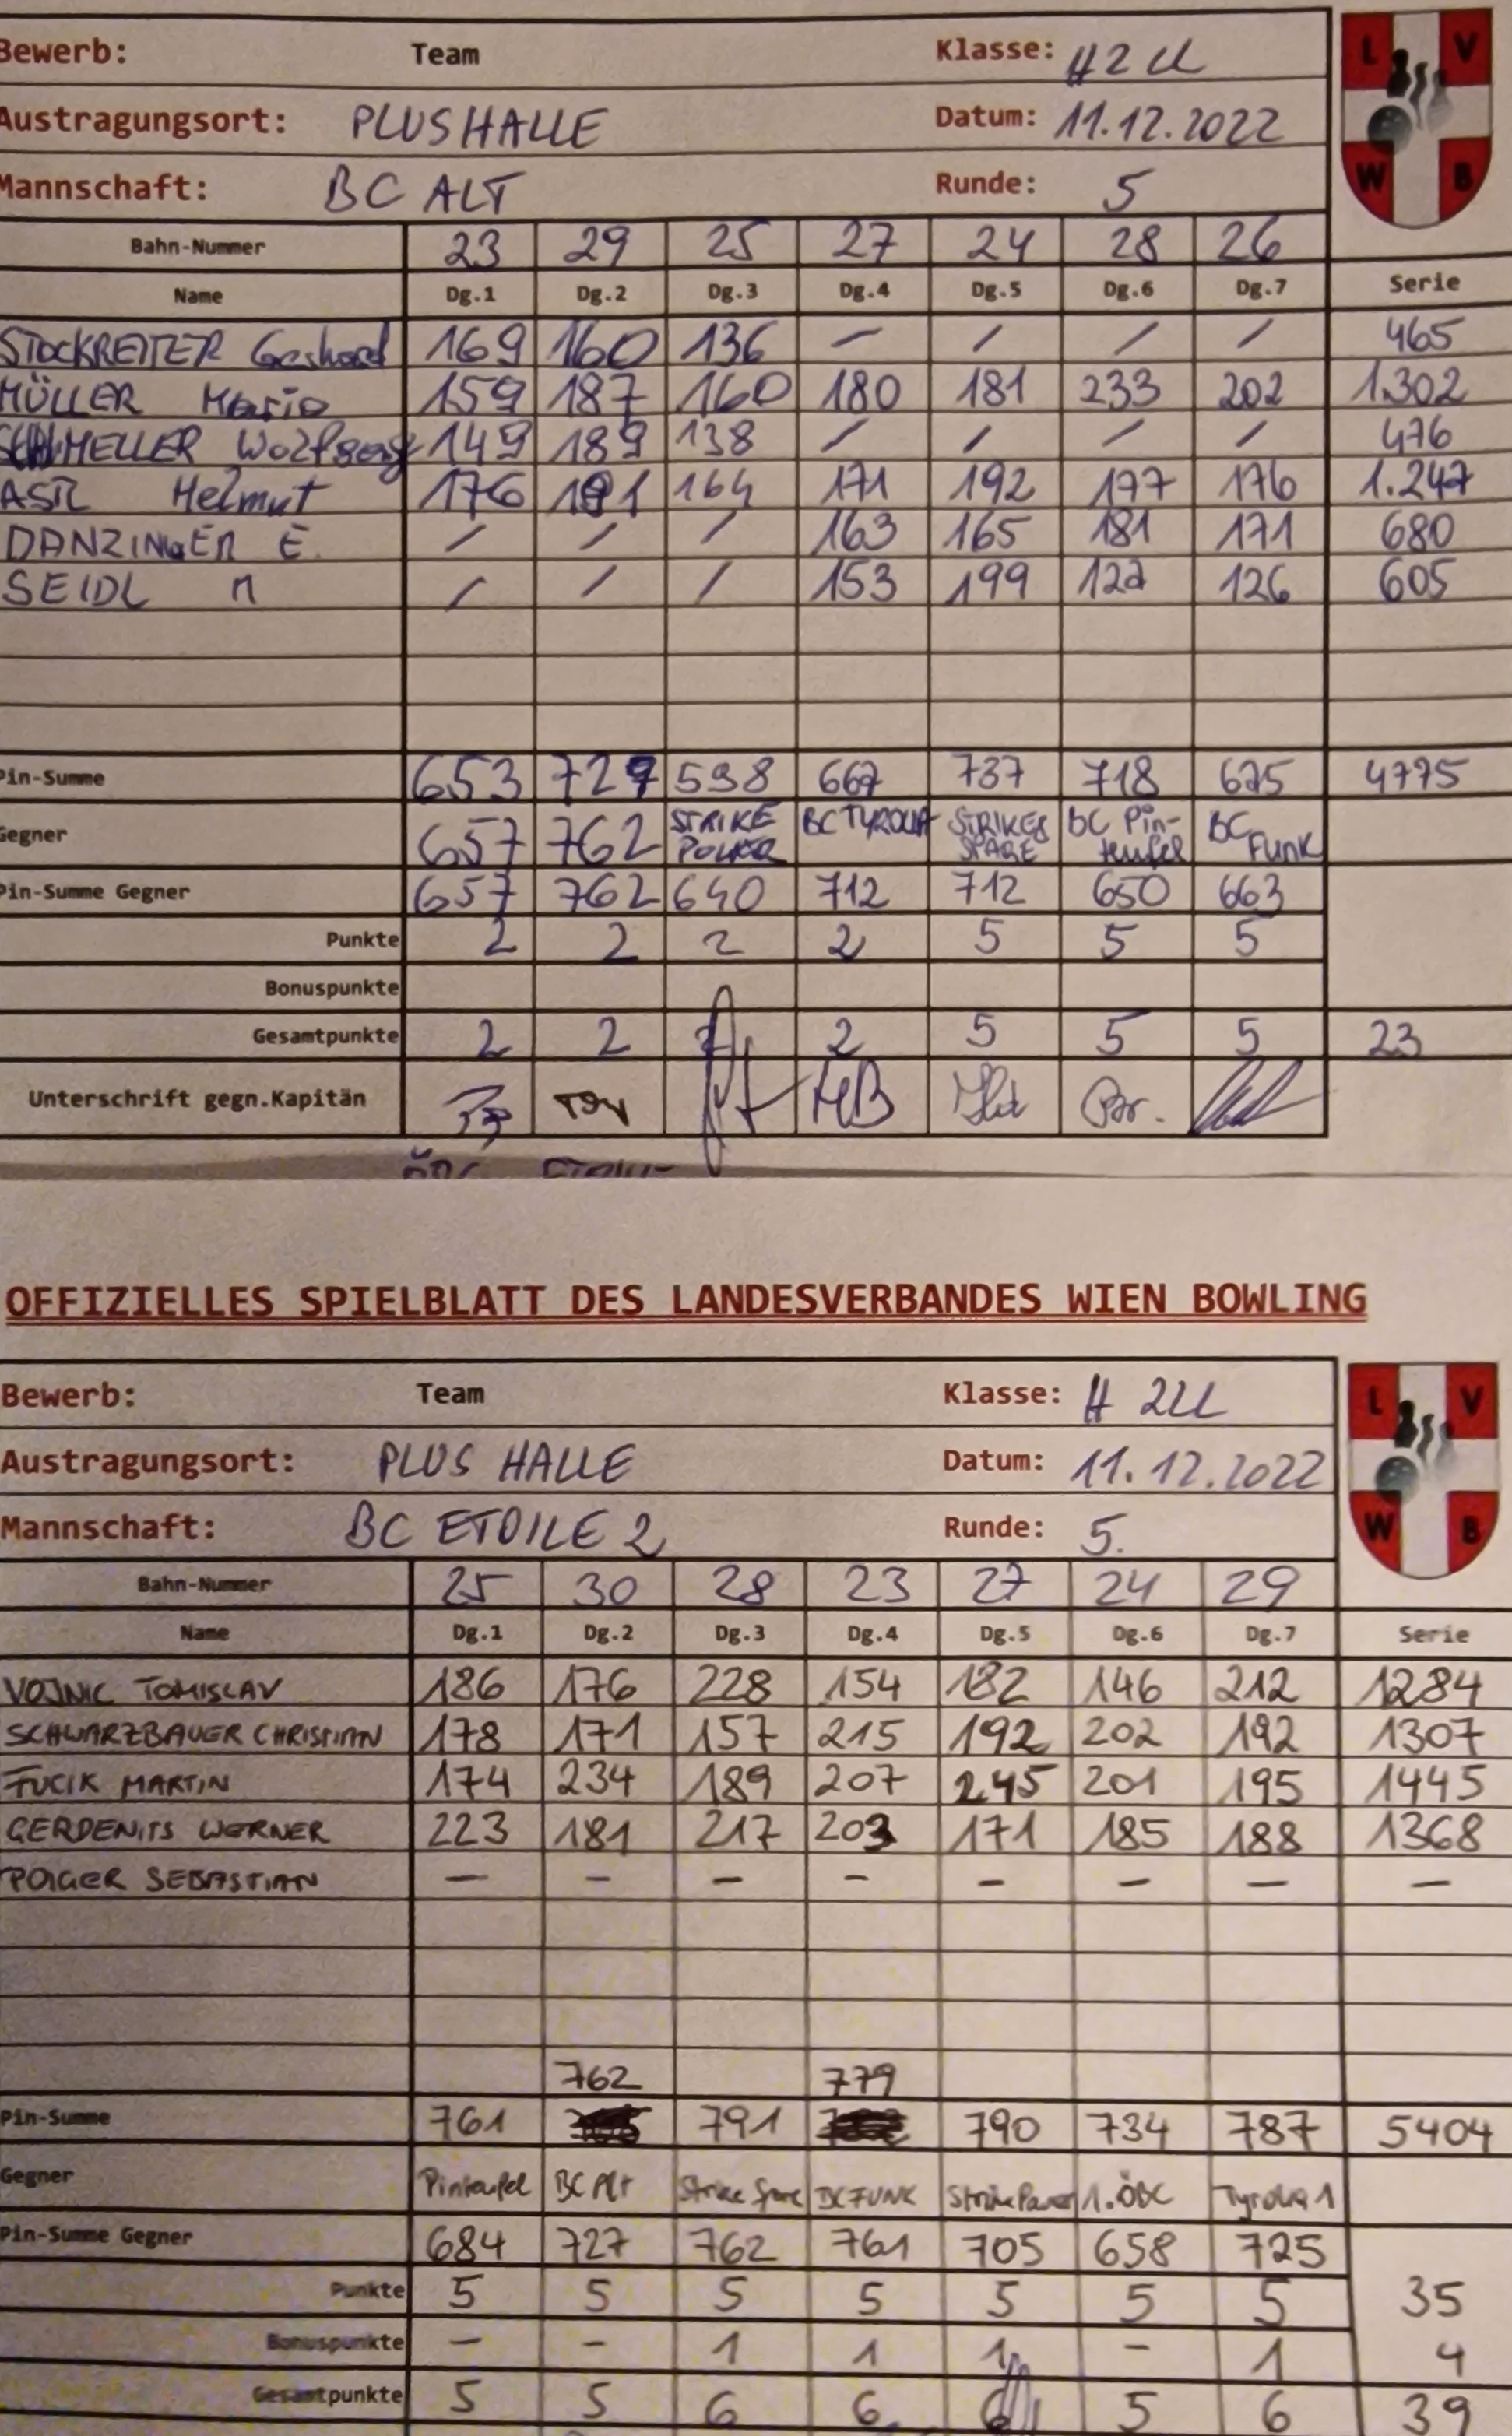 Bewerb: Team Klasse: H2U
Austragungsort: PLUSHALLE Datum: 11.12.2022
Mannschaft: BC ALT Runde: 5
L V
W B
Bahn-Nummer 23 29 25 27 24 28 26
Name Dg.1 Dg.2 Dg.3 Dg.4 Dg.5 Dg.6 Dg.7 Serie
STOCKREITER Gerhard 169 160 136 – / / / 465
MÜLLER Mario 159 187 160 180 181 233 202 1.302
HELLER Wolfgang 149 189 138 / / / / 476
ASTL Helmut 176 191 164 171 192 177 176 1.247
DANZINGER E. / / / 163 165 181 171 680
SEIDL M / / / 153 199 127 126 605
Pin-Summe 653 727 598 667 737 718 675 4775
Gegner 657 762 STRIKE POWER BC TYROLIA STRIKE& SPARE BC Pin-teufel BC FUNK
Pin-Summe Gegner 657 762 640 712 712 650 663
Punkte 2 2 2 2 5 5 5
Bonuspunkte
Gesamtpunkte 2 2 2 2 5 5 5 23
Unterschrift gegn.Kapitän
OFFIZIELLES SPIELBLATT DES LANDESVERBANDES WIEN BOWLING
Bewerb: Team Klasse: H 2U
Austragungsort: PLUS HALLE Datum: 11.12.2022
Mannschaft: BC ETOILE 2 Runde: 5.
L V
W B
Bahn-Nummer 25 30 28 23 27 24 29
Name Dg.1 Dg.2 Dg.3 Dg.4 Dg.5 Dg.6 Dg.7 Serie
VOJNIC TOMISLAV 186 176 228 154 182 146 212 1284
SCHWARZBAUER CHRISTIAN 178 171 157 215 192 202 192 1307
FUCIK MARTIN 174 234 189 207 245 201 195 1445
GERDENITS WERNER 223 181 217 203 171 185 188 1368
POIGER SEBASTIAN – – – – – – – –
762 779
Pin-Summe 761 791 790 734 787 5404
Gegner Pinteufel BC Alt Strike Spare BC FUNK Strike Power 1.ÖBC Tyrolia 1
Pin-Summe Gegner 684 727 762 761 705 658 725
Punkte 5 5 5 5 5 5 5 35
Bonuspunkte – – 1 1 1 – 1 4
Gesamtpunkte 5 5 6 6 6 5 6 39